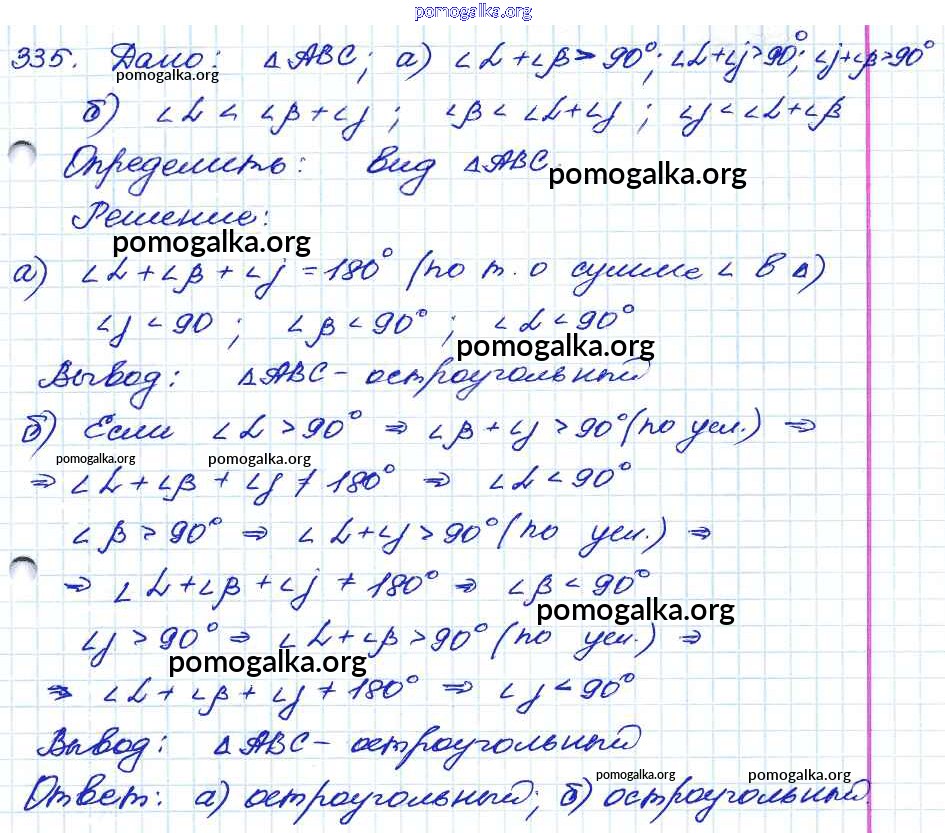 pomogalka.org
335. Дано: △ABC; а) ∠α+∠β>90°; ∠α+∠j>90°; ∠j+∠β>90°
pomogalka.org
б) ∠α < ∠β+∠j; ∠β<∠α+∠j; ∠j<∠α+∠β
Определить: вид △ABC.
pomogalka.org
Решение:
pomogalka.org
а) ∠α+∠β+∠j=180° (по т. о сумме ∠ в △)
∠j<90; ∠β<90°; ∠α<90°
pomogalka.org
Вывод: △ABC – остроугольный
б) Если ∠α>90° ⇒ ∠β+∠j>90° (по усл.) ⇒
pomogalka.org pomogalka.org
⇒ ∠α+∠β+∠j≠180° ⇒ ∠α<90°
∠β>90° ⇒ ∠α+∠j>90° (по усл.) ⇒
⇒ ∠α+∠β+∠j≠180° ⇒ ∠β<90°
pomogalka.org
∠j>90° ⇒ ∠α+∠β>90° (по усл.) ⇒
pomogalka.org
⇒ ∠α+∠β+∠j≠180° ⇒ ∠j<90°
Вывод: △ABC – остроугольный
pomogalka.org pomogalka.org
Ответ: а) остроугольный; б) остроугольный.